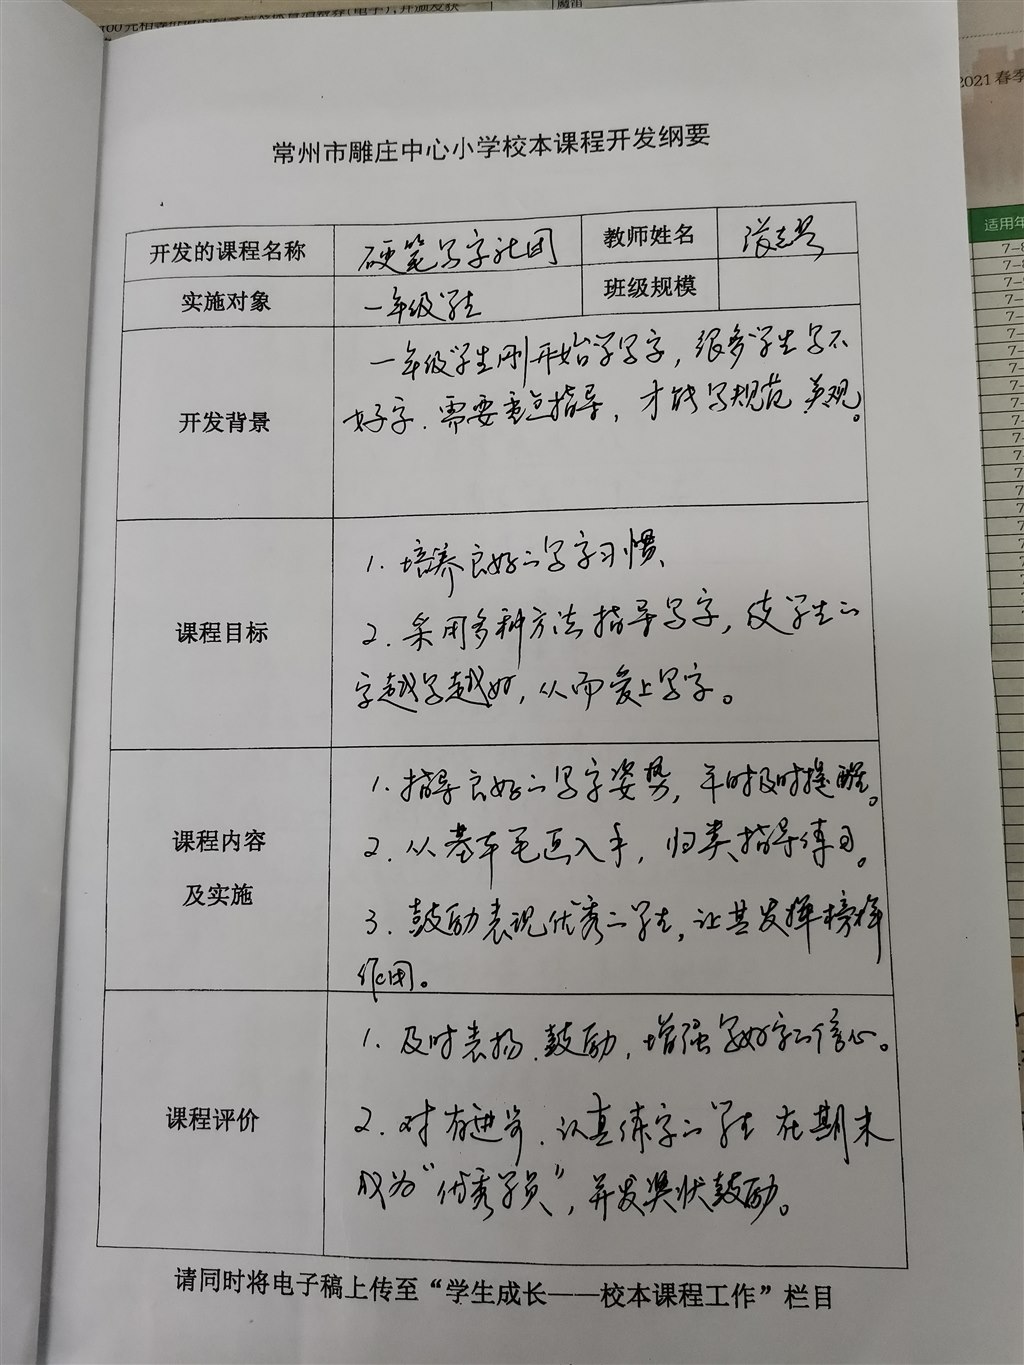 常州市雕庄中心小学校本课程开发纲要
开发的课程名称
硬笔写字社团
教师姓名
实施对象
一年级学生
班级规模
开发背景
一年级学生刚开始学写字，很多学生写不
好字．需要重点指导，才能写规范 美观。
课程目标
1. 培养良好的写字习惯、
2. 采用多种方法指导写字，使学生的
字越写越好，从而爱上写字。
课程内容
及实施
1. 指导良好的写字姿势，平时及时提醒。
2. 从基本笔画入手，归类指导练习。
3. 鼓励表现优秀的学生，让其发挥榜样
作用。
课程评价
1. 及时表扬、鼓励，增强写好字的信心。
2. 对有进步、认真练字的学生 在期末
成为“优秀学员”，并发奖状鼓励。
请同时将电子稿上传至“学生成长——校本课程工作”栏目
2021春季
适用年